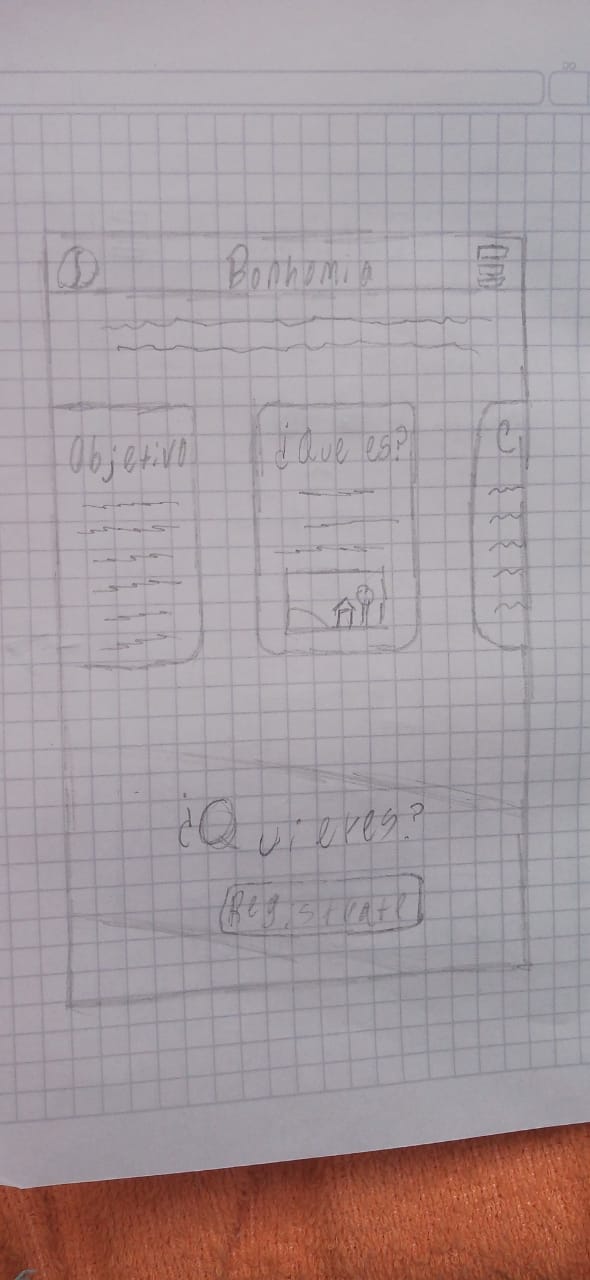 Bonhomia
Objetivo
¿Que es?
C
¿Quieres?
Registrate